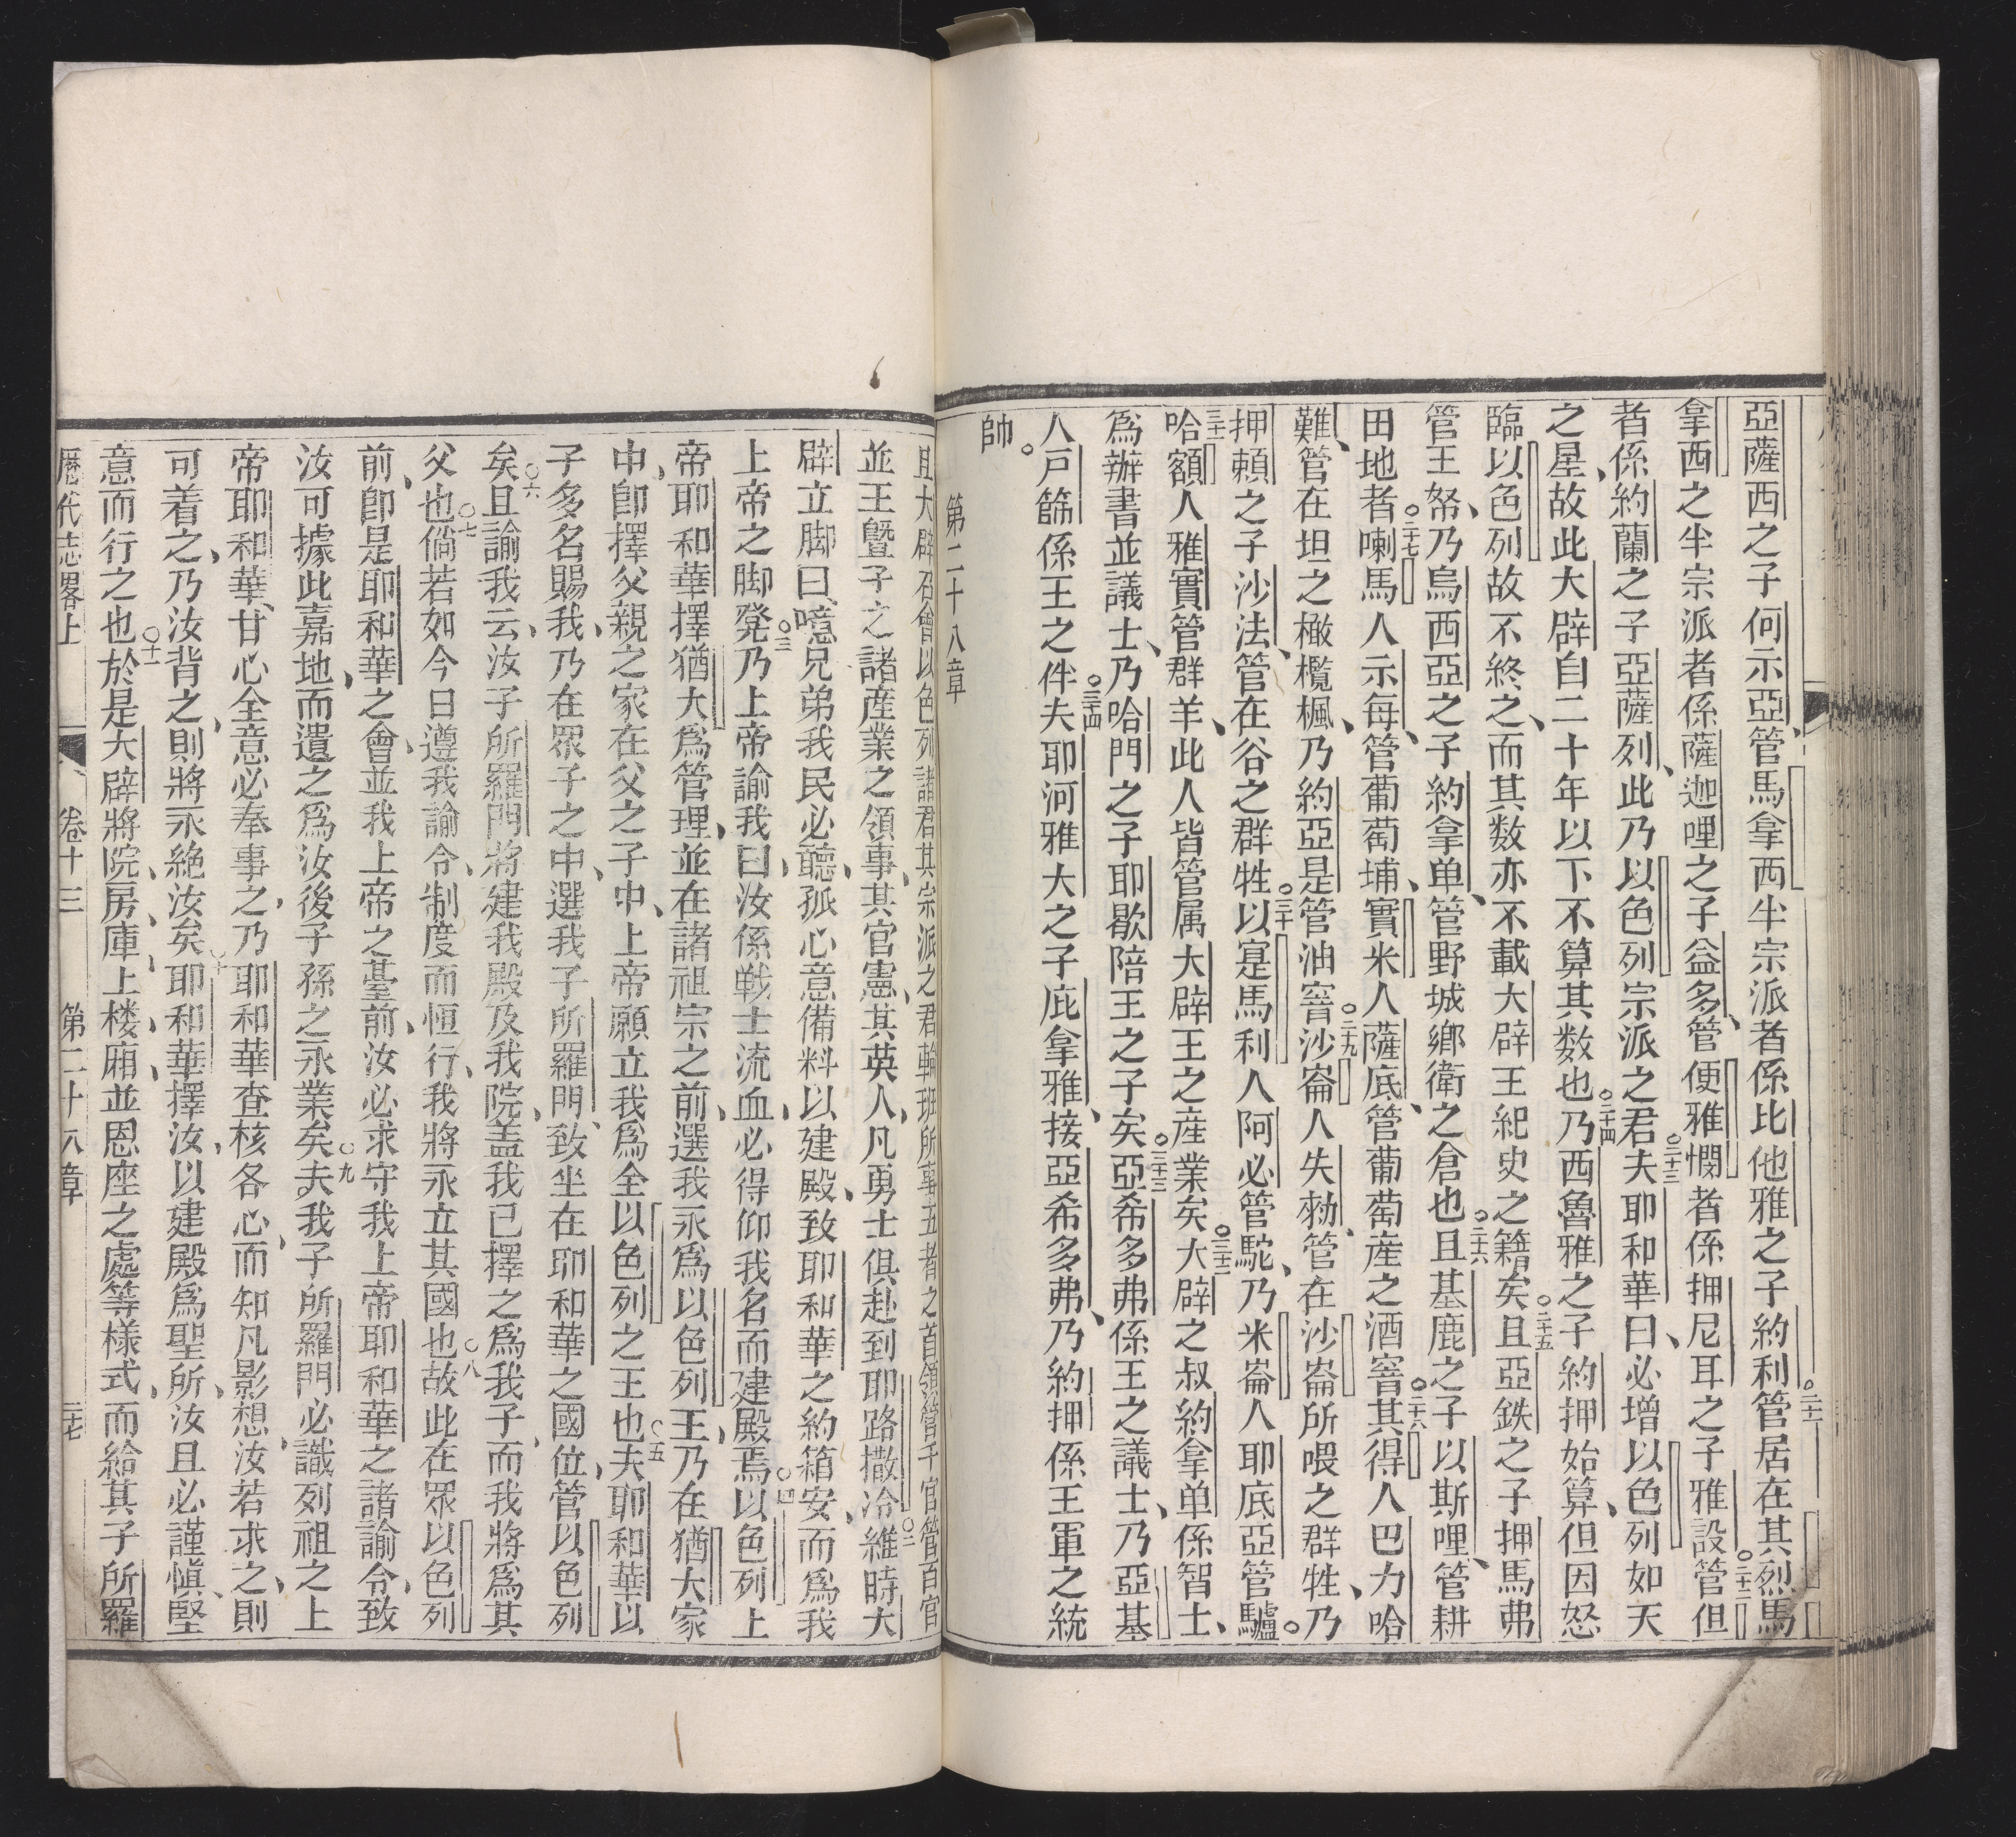 亞薩西之子何示亞、管馬拿西半宗派者係比他雅之子約利管居在其烈馬
拿西之半宗派者係薩迦哩之子益多、管便雅憫者係押尼耳之子雅設管但
者係約蘭之子亞薩列、此乃以色列宗派之君夫耶和華曰、必增以色列如天
之星、故此大辟自二十年以下不算其数也乃西魯雅之子約押始算、但因怒
臨以色列故不終之、而其数亦不載大辟王紀史之籍矣且亞鉄之子押馬弗
管王帑、乃烏西亞之子約拿单、管野城鄉衛之倉也且基鹿之子以斯哩、管耕
田地者喇馬人示每、管葡萄埔、實米人薩底、管葡萄産之酒窖其得人巴力哈
難、管在坦之橄欖楓、乃約亞是管油窖沙崙人失勑、管在沙崙所喂之群牲、乃
押賴之子沙法、管在谷之群牲以寔馬利人阿必管駝、乃米崙人耶底亞管驢。
哈額人雅實管群羊、此人皆管属大辟王之産業矣大辟之叔約拿单係智士、
爲辦書並議士、乃哈門之子耶歇陪王之子矣亞希多弗係王之議士、乃亞基
人戸篩係王之伴夫耶河雅大之子庇拿雅、接亞希多弗、乃約押係王軍之統
帥。
第二十八章
且大辟召會以色列諸君其宗派之君輪班所事王者之首領管千官管百官
並王暨子之諸産業之領事、其官憲、其英人、凡勇士俱赴到耶路撒冷維時大
辟立脚曰、噫兄弟我民必聽、孤心意備料以建殿、致耶和華之約箱安、而爲我
上帝之脚凳乃上帝諭我曰、汝係戦士流血、必得仰我名而建殿焉以色列上
帝耶和華擇猶大爲管理、並在諸祖宗之前、選我永爲以色列王、乃在猶大家
中、卽擇父親之家在父之子中、上帝願立我爲全以色列之王也夫耶和華以
子多名賜我、乃在眾子之中、選我子所羅門、致坐在耶和華之國位、管以色列
矣且諭我云、汝子所羅門將建我殿及我院、盖我已擇之爲我子、而我將爲其
父也倘若如今日遵我諭令、制度而恒行、我將永立其國也故此在眾以色列
前、卽是耶和華之會、並我上帝之臺前、汝必求守我上帝耶和華之諸諭令、致
汝可據此嘉地、而遺之爲汝後子孫之永業矣夫我子所羅門必識列祖之上
帝耶和華、甘心全意必奉事之、乃耶和華查核各心、而知凡影想、汝若求之、則
可着之、乃汝背之、則將永絶汝矣耶和華擇汝、以建殿爲聖所、汝且必謹愼、堅
意而行之也於是大辟將院、房、庫、上楼、廂、並恩座之處等様式、而給其子所羅
歷代志畧上 卷十三 第二十八章 三七